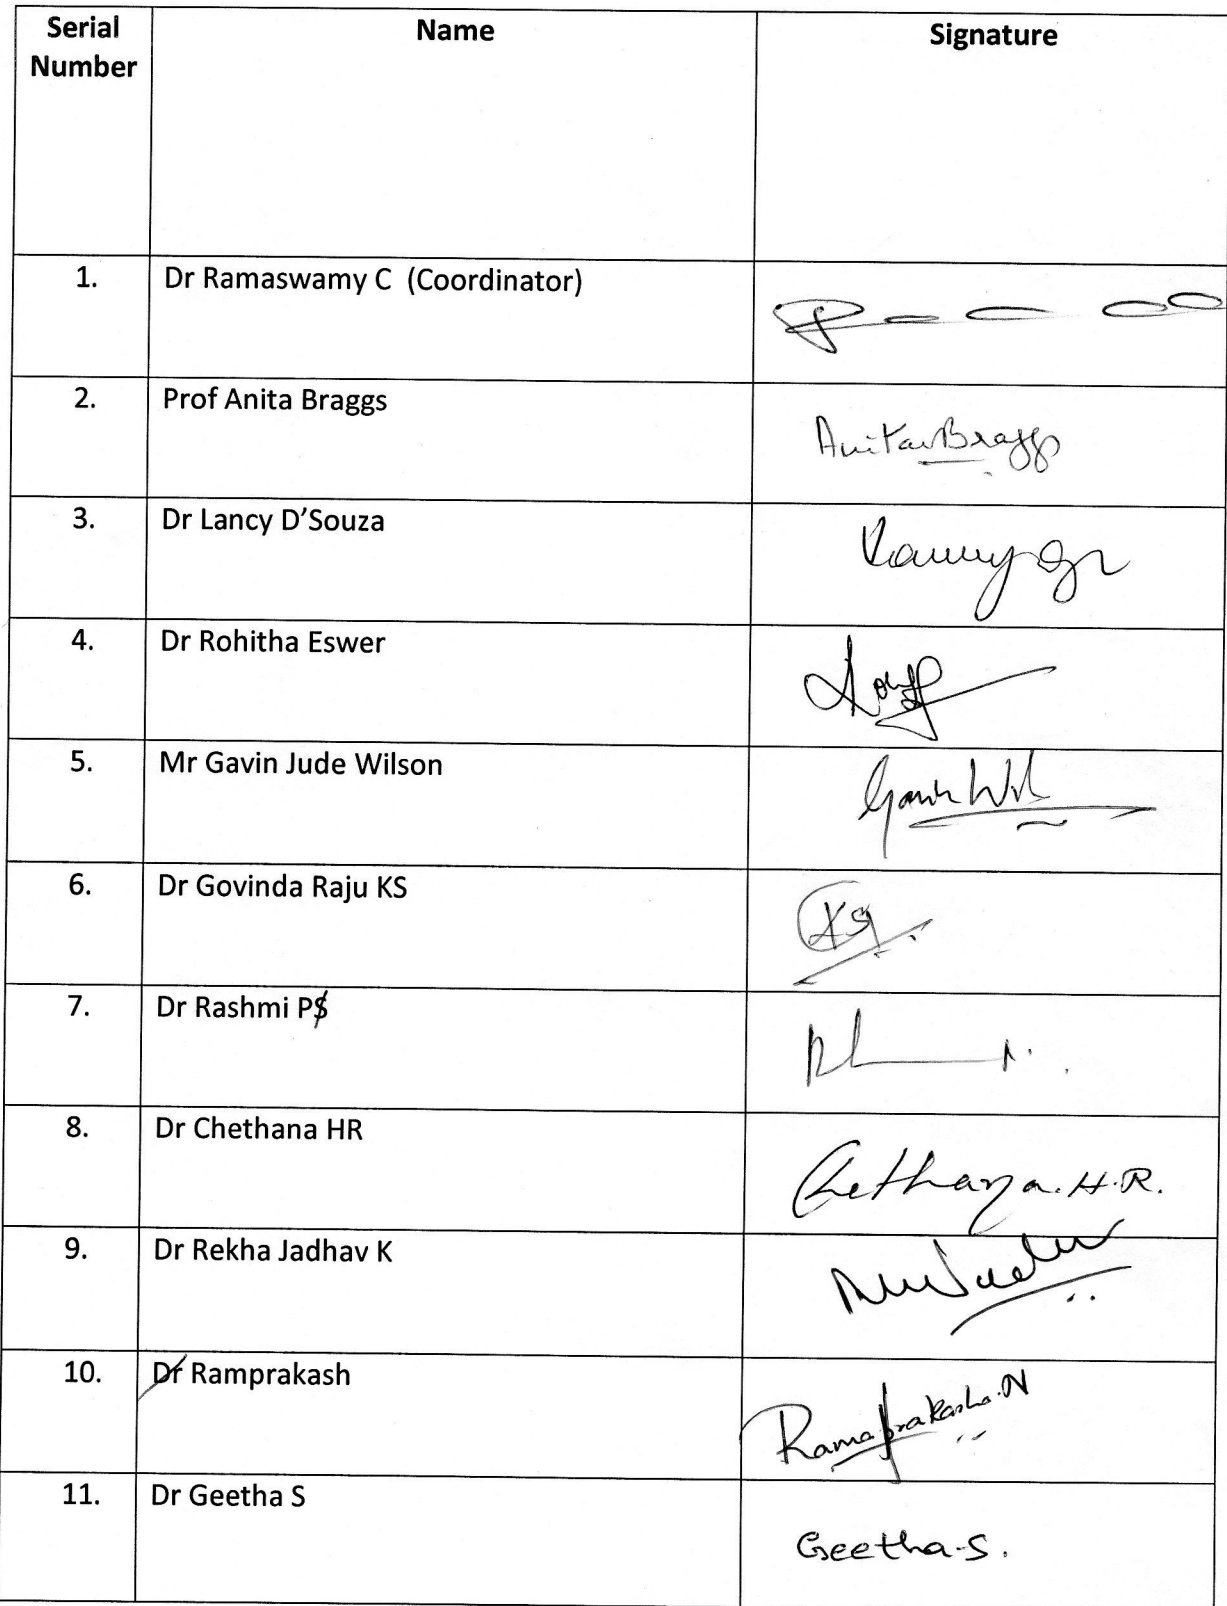 Serial Number Name Signature
1. Dr Ramaswamy C (Coordinator)
2. Prof Anita Braggs Anita Braggs
3. Dr Lancy D’Souza
4. Dr Rohitha Eswer
5. Mr Gavin Jude Wilson
6. Dr Govinda Raju KS
7. Dr Rashmi PS
8. Dr Chethana HR Chethana.H.R.
9. Dr Rekha Jadhav K
10. Dr Ramprakash Ramaprakasha.N
11. Dr Geetha S Geetha.S.